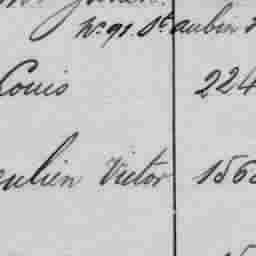 No 91. St aubin
Louis 224
ulien Victor 156